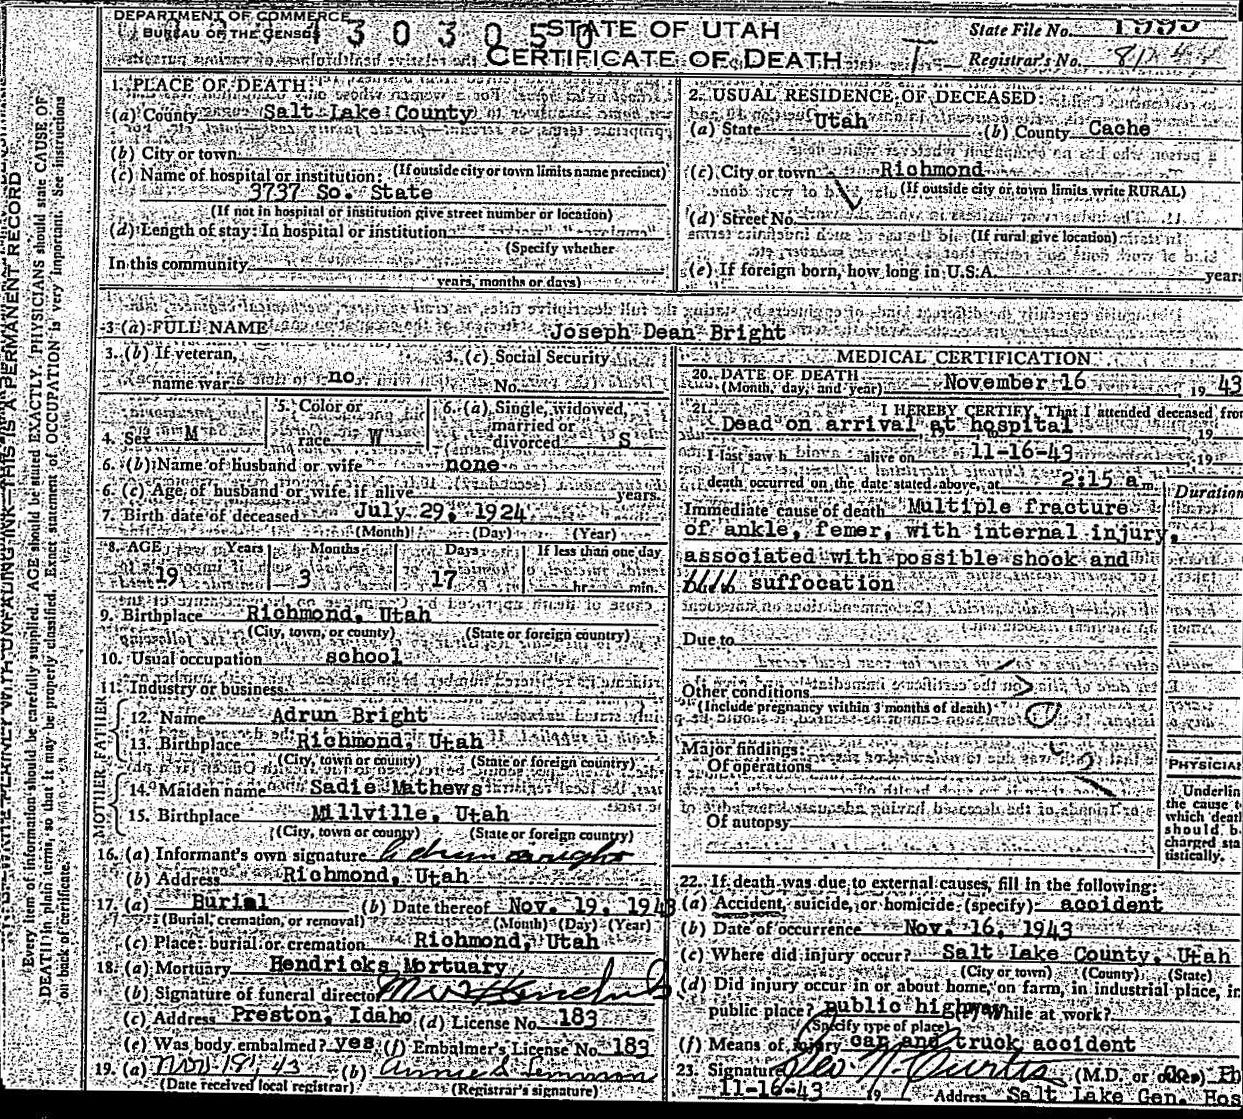 DEPARTMENT OF COMMERCE
BUREAU OF THE CENSUS
1 3 0 3 0 5 0
STATE OF UTAH
CERTIFICATE OF DEATH
State File No. 1995
Registrar's No.
1. PLACE OF DEATH:
(a) County Salt Lake County
(b) City or town
(c) Name of hospital or institution: (If outside city or town limits name precinct)
3737 So. State
(If not in hospital or institution give street number or location)
(d) Length of stay: In hospital or institution
(Specify whether
In this community
years, months or days)
2. USUAL RESIDENCE OF DECEASED:
(a) State Utah (b) County Cache
(c) City or town Richmond
(If outside city or town limits write RURAL)
(d) Street No.
(If rural give location)
(e) If foreign born, how long in U.S.A. years
3 (a) FULL NAME Joseph Dean Bright
3. (b) If veteran, name war no
3. (c) Social Security No.
4. Sex M
5. Color or race W
6. (a) Single, widowed, married or divorced S
6. (b) Name of husband or wife none
6. (c) Age of husband or wife if alive years
7. Birth date of deceased July 29, 1924
(Month) (Day) (Year)
8. AGE Years Months Days If less than one day
19 3 17 hr. min.
9. Birthplace Richmond, Utah
(City, town, or county) (State or foreign country)
10. Usual occupation school
11. Industry or business
FATHER
12. Name Adrun Bright
13. Birthplace Richmond, Utah
(City, town or county) (State or foreign country)
MOTHER
14. Maiden name Sadie Mathews
15. Birthplace Millville, Utah
(City, town or county) (State or foreign country)
16. (a) Informant's own signature Adrun Bright
(b) Address Richmond, Utah
17. (a) Burial (b) Date thereof Nov. 19, 1943
(Burial, cremation, or removal) (Month) (Day) (Year)
(c) Place: burial or cremation Richmond, Utah
18. (a) Mortuary Hendricks Mortuary
(b) Signature of funeral director
(c) Address Preston, Idaho (d) License No. 183
(e) Was body embalmed? yes (f) Embalmer's License No. 183
19. (a) (b)
(Date received local registrar) (Registrar's signature)
MEDICAL CERTIFICATION
20. DATE OF DEATH
(Month, day, and year) November 16 19 43
21. I HEREBY CERTIFY, That I attended deceased from
Dead on arrival at hospital , 19
I last saw h alive on 11-16-43 , 19
death occurred on the date stated above, at 2:15 a m.
Duration
Immediate cause of death Multiple fracture
of ankle, femer, with internal injury,
associated with possible shock and
suffocation
Due to
Other conditions
(Include pregnancy within 3 months of death)
Major findings:
Of operations
Of autopsy
PHYSICIAN
Underlin
the cause t
which deat
should b
charged sta
tistically.
22. If death was due to external causes, fill in the following:
(a) Accident, suicide, or homicide (specify) accident
(b) Date of occurrence Nov. 16, 1943
(c) Where did injury occur? Salt Lake County, Utah
(City or town) (County) (State)
(d) Did injury occur in or about home, on farm, in industrial place, in
public place? public highway While at work?
(Specify type of place)
(f) Means of injury car and truck accident
23. Signature Geo. N. Curtis (M.D. or other) Co. Ph
11-16-43 19 Address Salt Lake Gen. Hos
THIS IS A PERMANENT RECORD
Every item of information should be carefully supplied. AGE should be stated EXACTLY. PHYSICIANS should state CAUSE OF
DEATH in plain terms, so that it may be properly classified. Exact statement of OCCUPATION is very important. See instructions
on back of certificate.